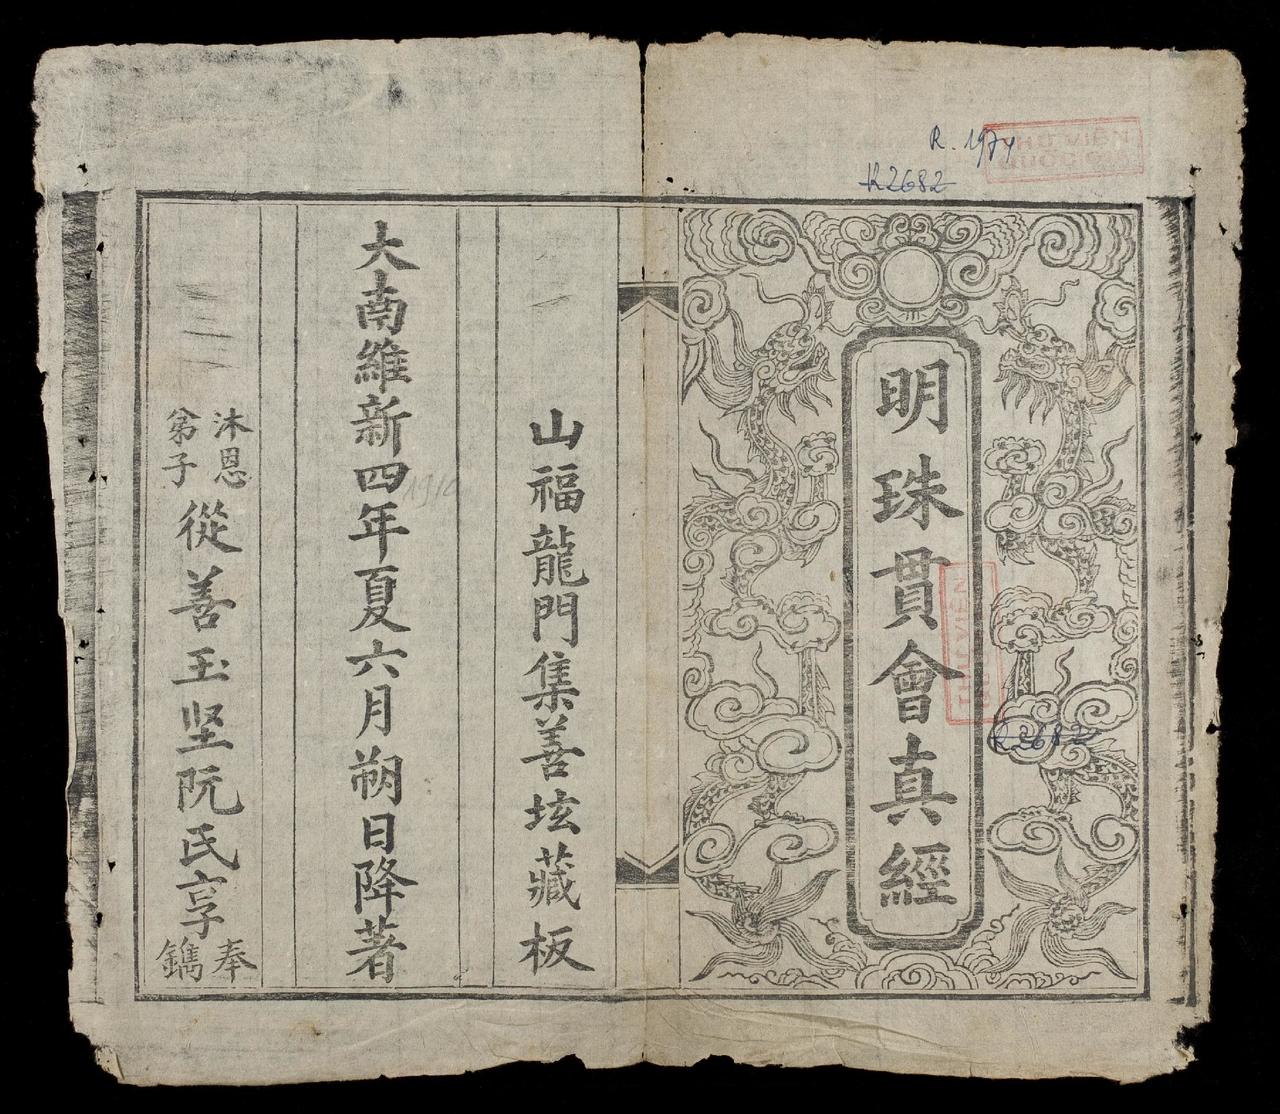 R. 1974
R2682
THƯ VIÊN
QUOC GIA
明珠貫會真經
R2682
山福龍門集善坛藏板
大南維新四年夏六月朔日降著
1910
沐恩
弟子
從善玉坚阮氏享
奉
鐫